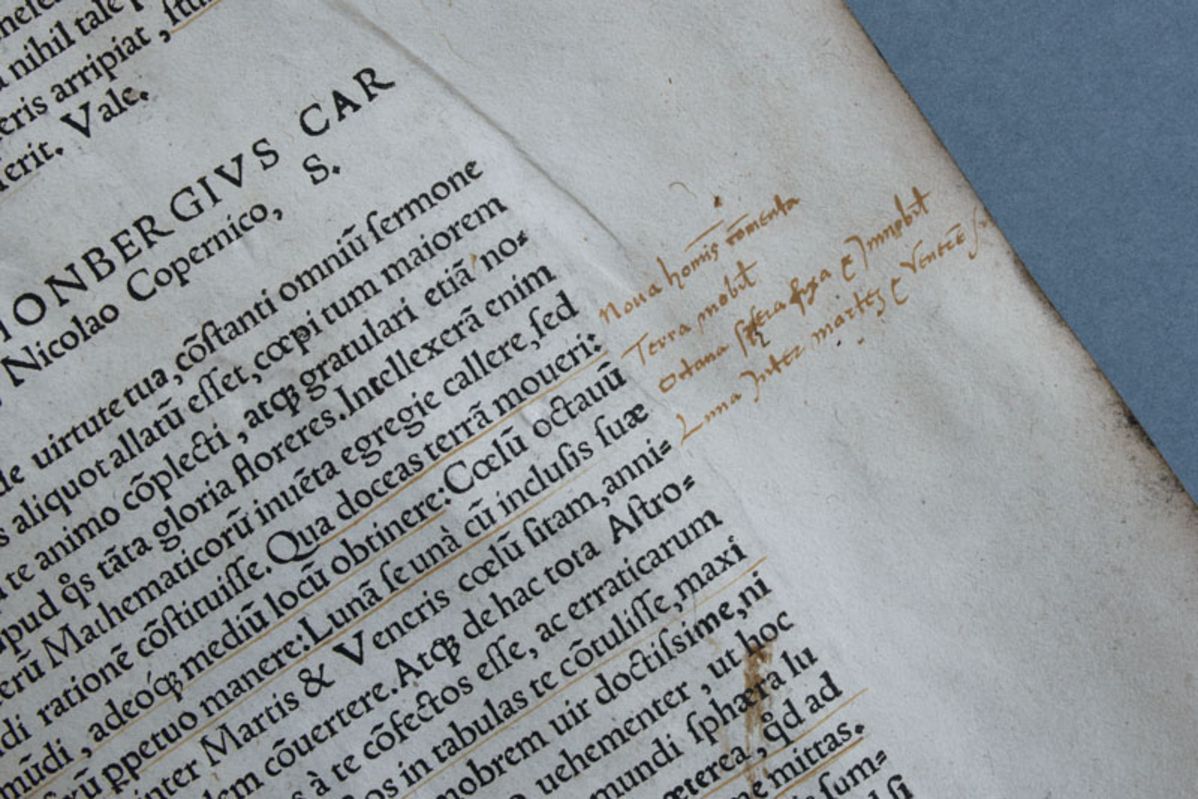 nihil tale p
eris arripiat, stu
erit. Vale.
ONBERGIVS CAR
Nicolao Copernico, S.
de uirtute tua, cõstanti omniũ sermone
s aliquot allatũ esset, cœpi tum maiorem
te animo cõplecti, atqꝫ gratulari etiã no-
apud q̊s tãta gloria floreres. Intellexerã enim
erũ Mathematicorũ inuẽta egregie callere, sed
di rationẽ cõstituisse. Qua doceas terrã moueri:
mũdi, adeoq́ꝫ mediũ locũ obtinere: Cœlũ octauũ
xũ ꝑpetuo manere: Lunã se unà cũ inclusis suæ
inter Martis & Veneris cœlũ sitam, anni-
em cõuertere. Atqꝫ de hac tota Astro-
s à te cõfectos esse, ac erraticarum
os in tabulas te cõtulisse, maxi
mobrem uir doctissime, ni
uehementer, ut hoc
mundi sphæra lu
æterea, q̊d ad
ne mittas.
sum-
si
Noua homĩs
Terra mobil
fixa Immobil
Luna Inter martẽ Venerẽ